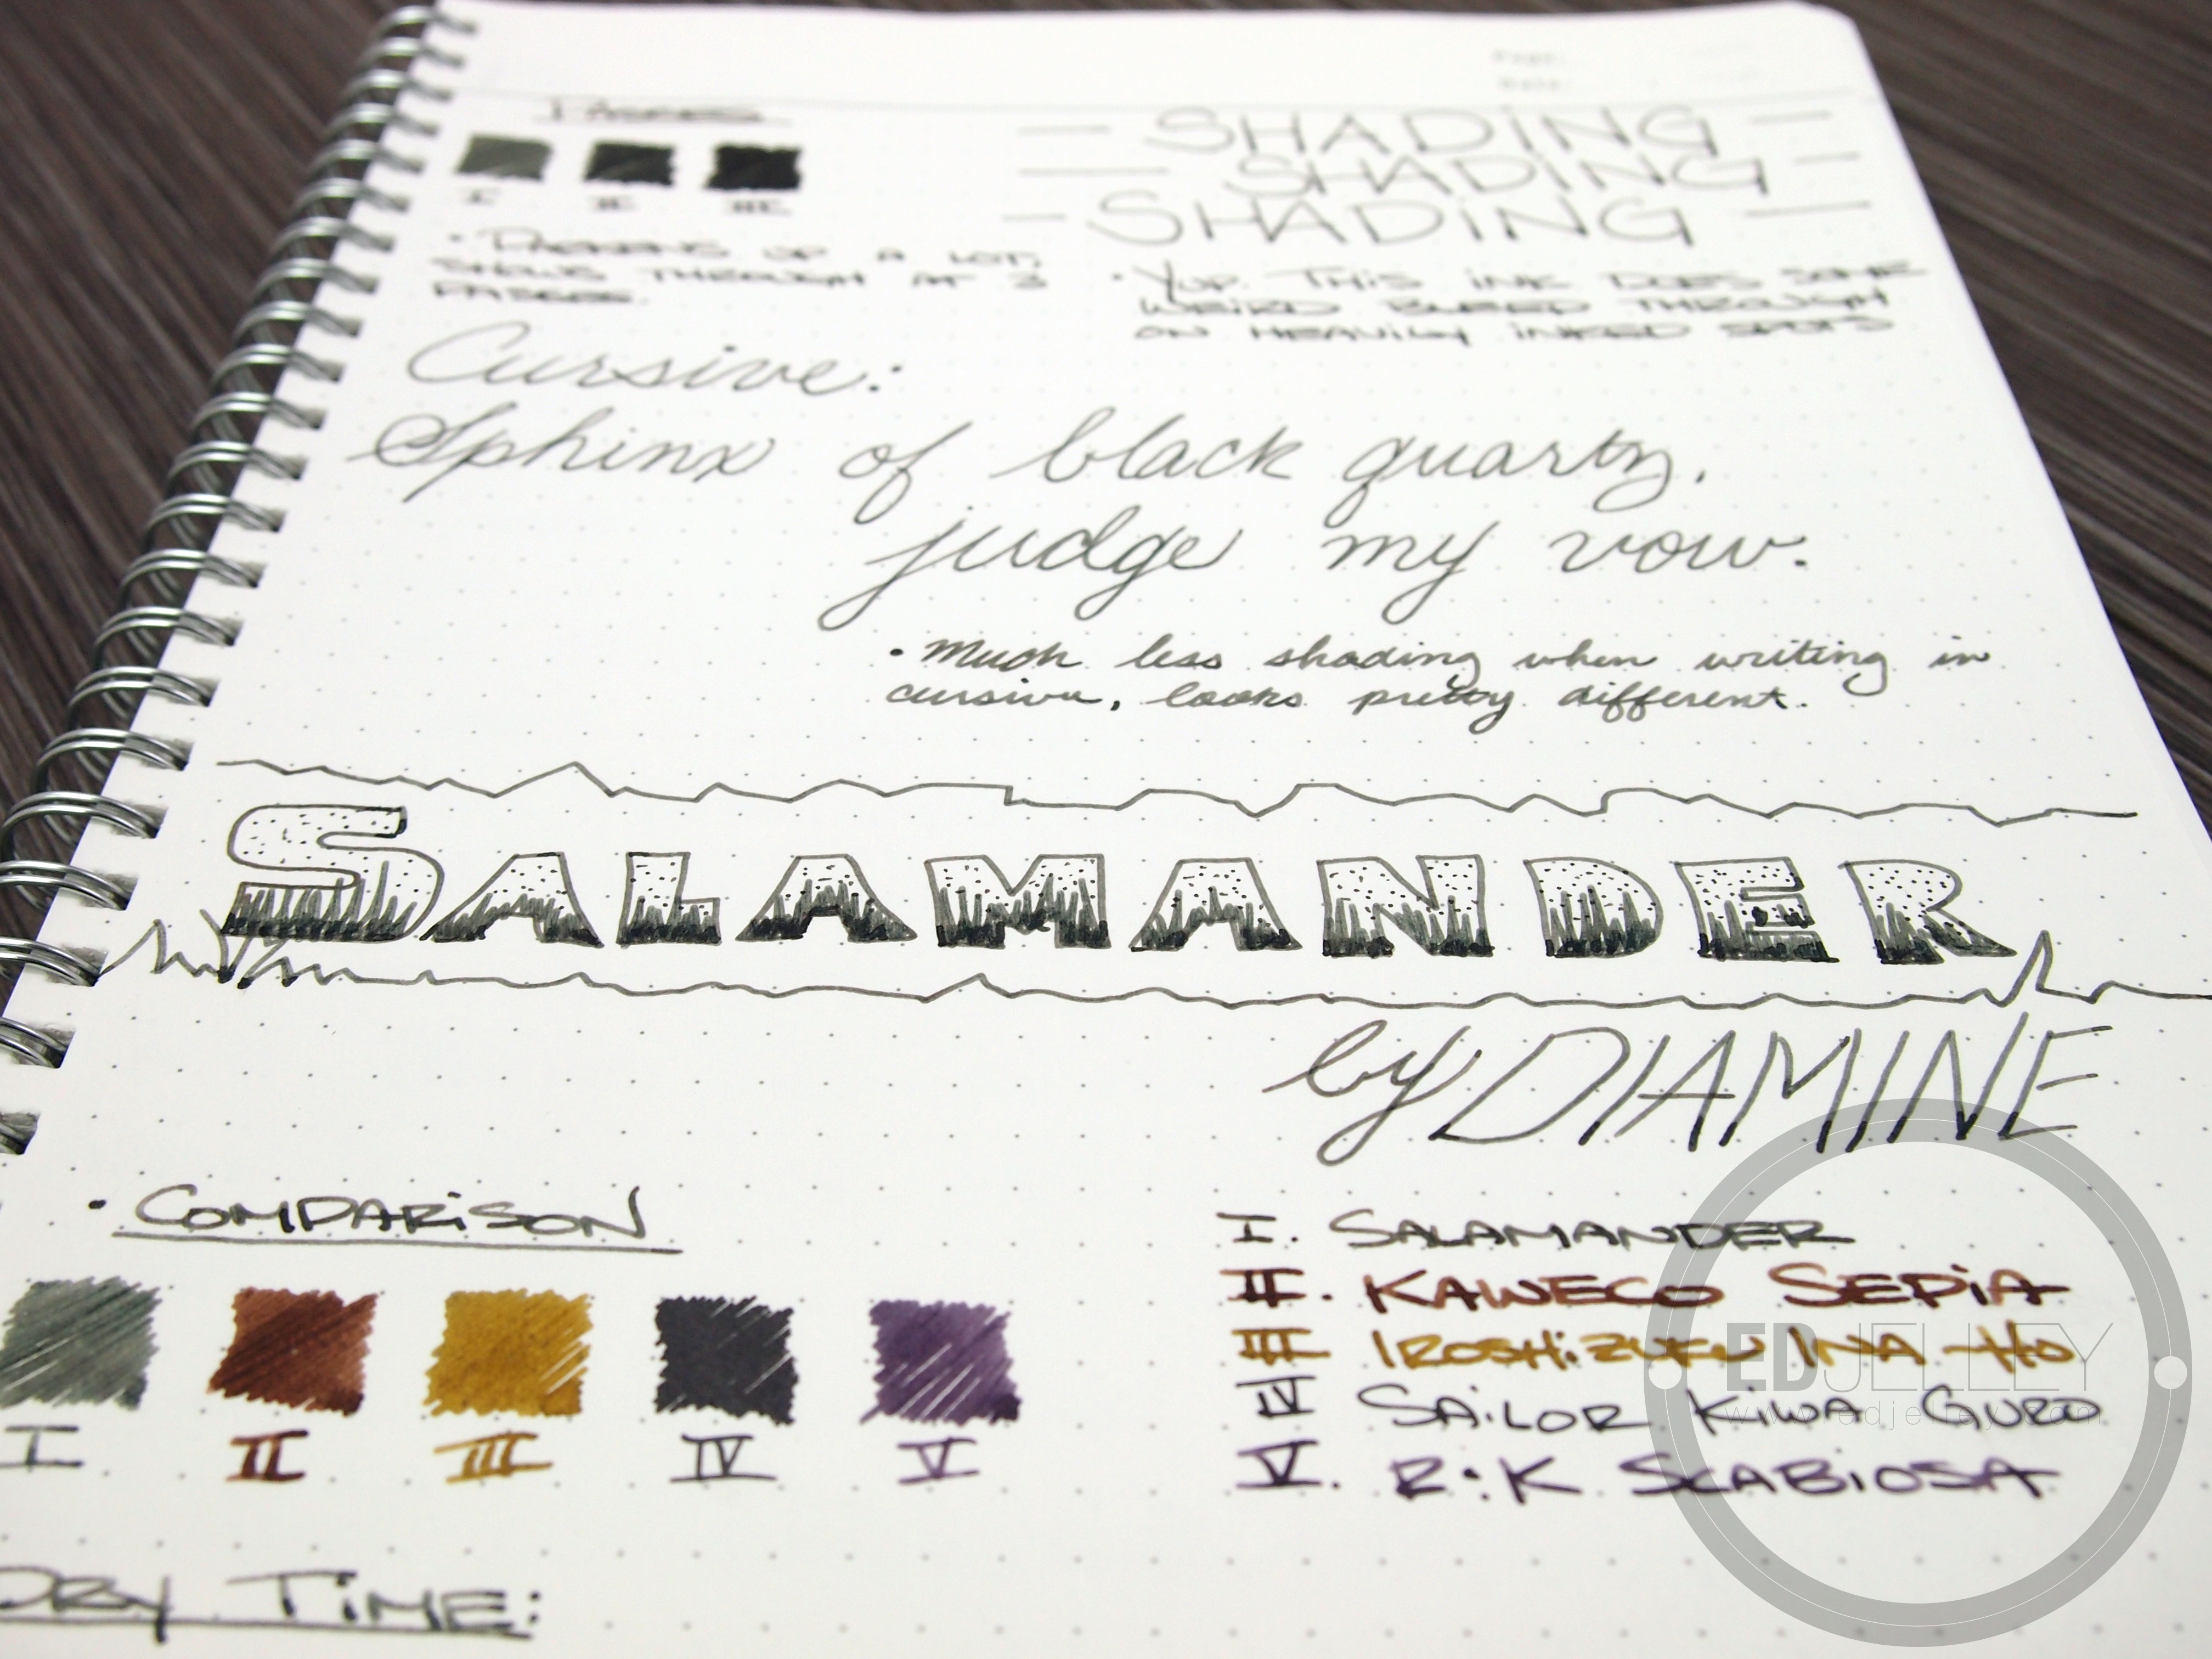 Page:
Date:
PASSES
I II III
• DARKENS UP A LOT,
SHOWS THROUGH AT 3
PASSES.
— SHADING —
— SHADING —
— SHADING —
• YUP. THIS INK DOES SOME
WEIRD BLEED THROUGH
ON HEAVILY INKED SPOTS
Cursive:
Sphinx of black quartz,
judge my vow.
• Much less shading when writing in
cursive, looks pretty different.
SALAMANDER
by DIAMINE
• COMPARISON
I II III IV V
I. SALAMANDER
II. KAWECO SEPIA
III IROSHIZUKU INA-HO
IV SAILOR KIWA GURO
V. R:K SCABIOSA
DRY TIME:
EDJELLEY
www.edjelley.com